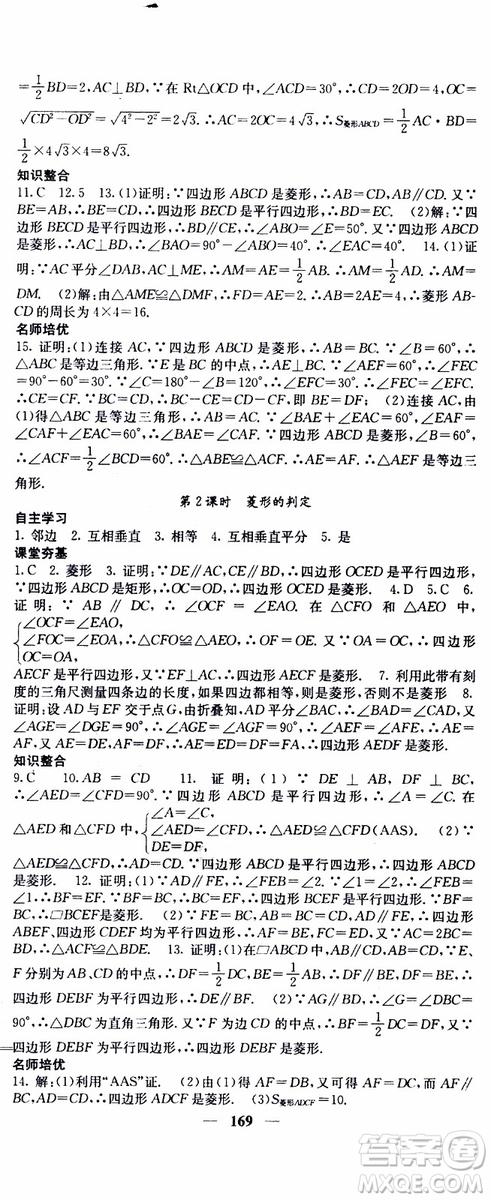 =1/2BD=2,AC⊥BD,∵在Rt△OCD中,∠CD=2OD=4,OC=
√CD²−OD²=√4²−2²=2√3.∴AC=2OC=4√3,∴S菱形ABCD=1/2AC·BD=
1/2×4√3×4=8√3.
知识整合
11.C 12.5 13.(1)证明:∵四边形ABCD是菱形,∴AB=CD,AB∥CD.又∵
BE=AB,∴BE=CD,∴四边形BECD是平行四边形,∴BD=EC. (2)解:∵四边形
BECD是平行四边形,∴BD∥CE,∴∠ABO=∠E=50°.又∵四边形ABCD是菱形,
∴AC⊥BD,∴∠BAO=90°−∠ABO=40°. 14.(1)证
明:∵AC平分∠DAB,AC⊥ME,∴AM=AE=1/2AB=1/2AD,∴AM=
DM. (2)解:由△AME≌△DMF,FD=AE=2,∴AB=4,∴菱形AB-
CD的周长为4×4=16.
名师培优
15.证明:(1)连接AC,∵四边形ABCD是菱形,∴AB=BC.∵∠B=60°,∴
△ABC是等边三角形.∵E是BC的中点,∴AE⊥BC.∵∠AEF=60°,∴∠FEC
=90°−60°=30°.∵∠C=180°−∠B=120°,∴∠EFC=30°,∴∠FEC=∠EFC,
∴CE=CF.∵BC=CD,∴BC−CE=CD−CF,即BE=DF; (2)连接AC,由
(1)得△ABC是等边三角形,∴AB=AC.∵∠BAE+∠EAC=60°,∠EAF=
∠CAF+∠EAC=60°,∴∠BAE=∠CAF.∵四边形ABCD是菱形,∠B=60°,
∴∠ACF=1/2∠BCD=∠B=60°,∴△ABE≌△ACF,∴AE=AF,∴△AEF是等边三
角形.
第2课时 菱形的判定
自主学习
1.邻边 2.互相垂直 3.相等 4.互相垂直平分 5.是
课堂夯基
1.C 2.菱形 3.证明:∵DE∥AC,CE∥BD,∴四边形OCED是平行四边形,∵
四边形ABCD是矩形,∴OC=OD,∴四边形OCED是菱形. 4.D 5.C 6.
证明:∵AB∥DC,∴∠OCF=∠OAE.在△CFO和△AEO中,
{∠OCF=∠EAO,
∠FOC=∠EOA,∴△CFO≌△AEO,∴OF=OE.又∵OA=OC,∴四边形
OC=OA,
AECF是平行四边形,又∵EF⊥AC,∴四边形AECF是菱形. 7.利用此带有刻
度的三角尺测量四条边的长度,如果四边都相等,则是菱形,否则不是菱形 8.
证明:设AD与EF交于点G,由折叠知,AD⊥EF,∴∠AGE=∠AGF=90°,又∵
∠AGE=∠DGE=90°,∴∠AGE=∠AGF=90°,∴AE=AF,又∵AE=DE,AF
=DF,∴AE=DE=AF=DF,∴四边形AEDF是菱形.
知识整合
9.C 10.AB=CD 11.证明:(1)∵DE⊥AB,DF⊥BC,∴
∠AED=∠CFD=90°.∵四边形ABCD是平行四边形,∴∠A=∠C.在
△AED和△CFD中,{∠A=∠C,
∠AED=∠CFD,∴△AED≌△CFD(AAS). (2)∵
DE=DF,
△AED≌△CFD,∴AD=CD.又∵四边形ABCD是平行四边形,∴四边形ABCD
是菱形. 12.证明:(1)∵AD∥FE,∴∠FEB=∠2.∵∠1=∠2,∴∠FEB=
∠1,∴BF=EF.∵BF=BC,∴BC=EF,∴四边形BCEF是平行四边形.又∵BF=
EF,∴▱BCEF是菱形. (2)∵EF=BC,AB=BC=CD,AD∥FE,∴四边形
ABEF、四边形CDEF均为平行四边形,∴AF=BE,FC=ED,又∵AC=2BC=
BD,∴△ACF≌△BDE. 13.证明:(1)在▱ABCD中,AB∥CD,AB=CD,∵E、
F分别为AB、CD的中点,∴DF=1/2DC,BE=1/2AB,∴DF∥BE,DF=BE,∴四
边形DEBF为平行四边形,∴DE∥BF. (2)∵AG∥BD,∴∠G=∠DBC=
90°,∴△DBC为直角三角形.又∵F为边CD的中点,∴BF=1/2DC=DF.又∵
四边形DEBF为平行四边形,∴四边形DEBF是菱形.
名师培优
14.解:(1)利用“AAS”证. (2)由(1)得AF=DB,又∵DB=DC,∴AF=CD.
∵AF∥BC,∴四边形ADCF是平行四边形,可证AD=DC,∴四边形ADCF是菱形. (3)S菱形ADCF=10.
169